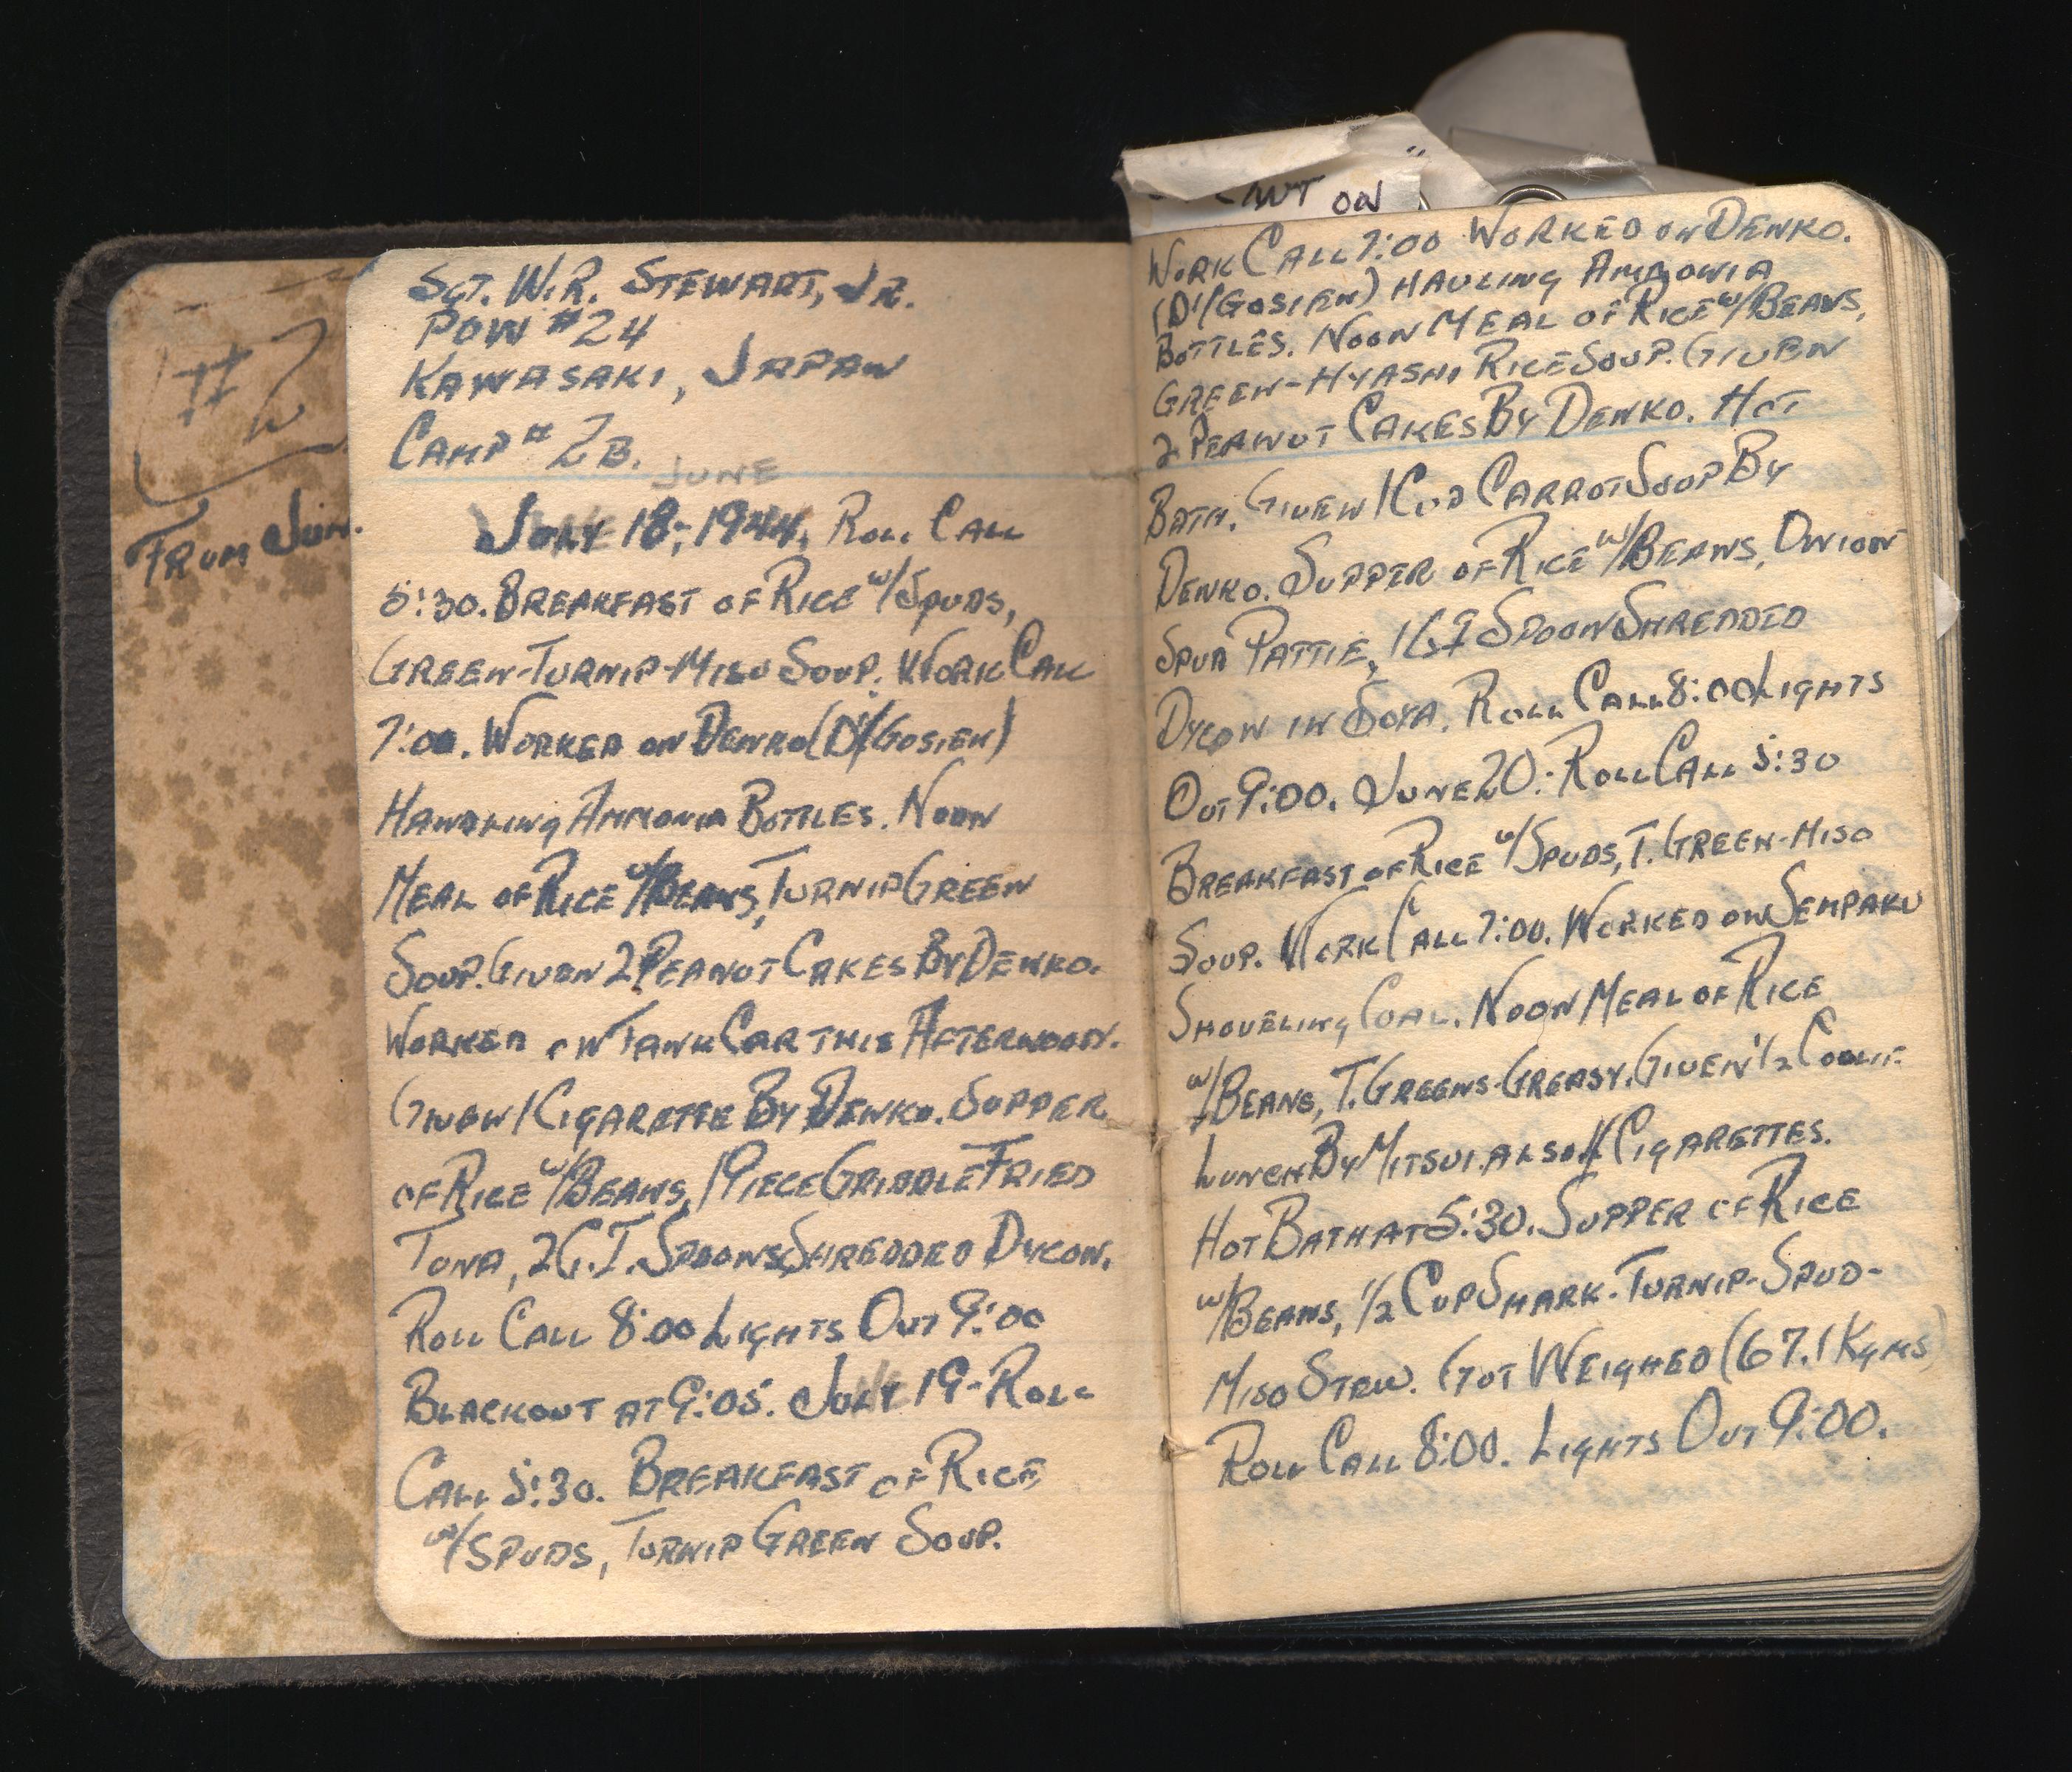 #2
FROM JUN.
SGT. W.R. STEWART, JR.
POW #24
KAWASAKI, JAPAN
CAMP # 2B.
JUNE
JULY 18, 1944, ROLL CALL
5:30. BREAKFAST OF RICE W/SPUDS,
GREEN-TURNIP-MISO SOUP. WORK CALL
7:00. WORKED ON DENKO (D'/GOSIEN)
HANDLING AMMONIA BOTTLES. NOON
MEAL OF RICE W/BEANS, TURNIP GREEN
SOUP. GIVEN 2 PEANUT CAKES BY DENKO.
WORKED ON TANK CAR THIS AFTERNOON.
GIVEN 1 CIGARETTE BY DENKO. SUPPER
OF RICE W/BEANS, 1 PIECE GRIDDLE FRIED
TUNA, 2 G.I. SPOONS SHREDDED DYCON.
ROLL CALL 8:00 LIGHTS OUT 9:00
BLACKOUT AT 9:05. JULY 19- ROLL
CALL 5:30. BREAKFAST OF RICE
W/SPUDS, TURNIP GREEN SOUP.
ON
WORK CALL 7:00 WORKED ON DENKO.
(D'/GOSIEN) HAULING AMMONIA
BOTTLES. NOON MEAL OF RICE W/BEANS,
GREEN-HYASHI RICE SOUP. GIVEN
2 PEANUT CAKES BY DENKO. HOT
BATH. GIVEN 1 CUP CARROT SOUP BY
DENKO. SUPPER OF RICE W/BEANS, ONION
SPUD PATTIE, SPOON SHREDDED
DYCON IN SOYA. ROLL CALL 8:00 LIGHTS
OUT 9:00. JUNE 20: ROLL CALL 5:30
BREAKFAST OF RICE W/SPUDS, T. GREEN-MISO
SOUP. WORK CALL 7:00. WORKED ON SEMPAKU
SHOVELING COAL. NOON MEAL OF RICE
W/BEANS, T. GREENS-GREASY. GIVEN 1/2 COOLIE
LUNCH BY MITSUI. ALSO CIGARETTES.
HOT BATH AT 5:30. SUPPER OF RICE
W/BEANS, 1/2 CUP SHARK-TURNIP-SPUD-
MISO STEW. GOT WEIGHED (67.1 KGMS)
ROLL CALL 8:00. LIGHTS OUT 9:00.